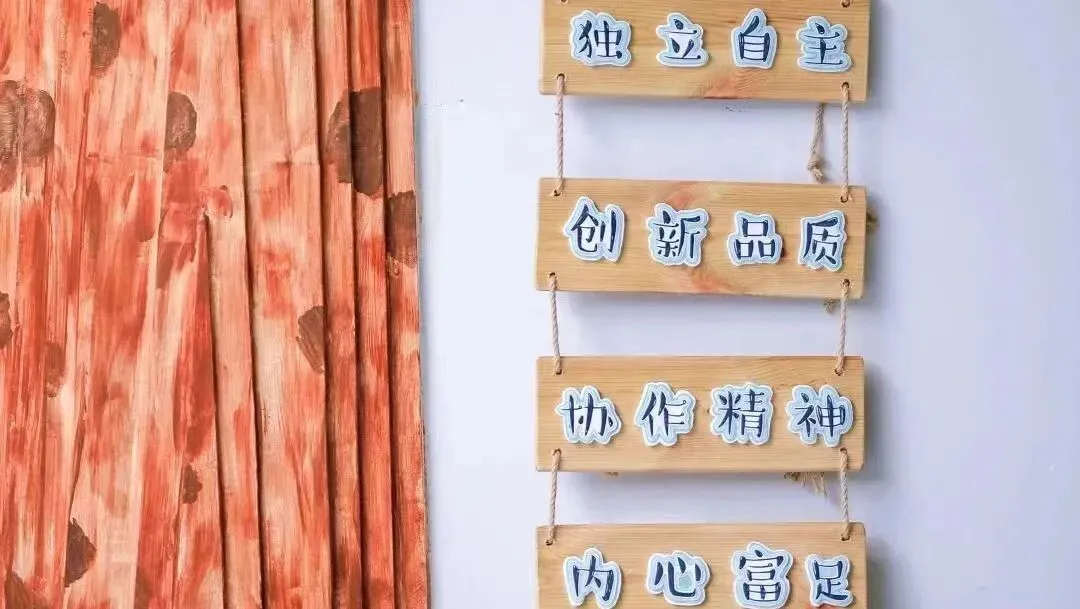 独立自主
创新品质
协作精神
内心富足